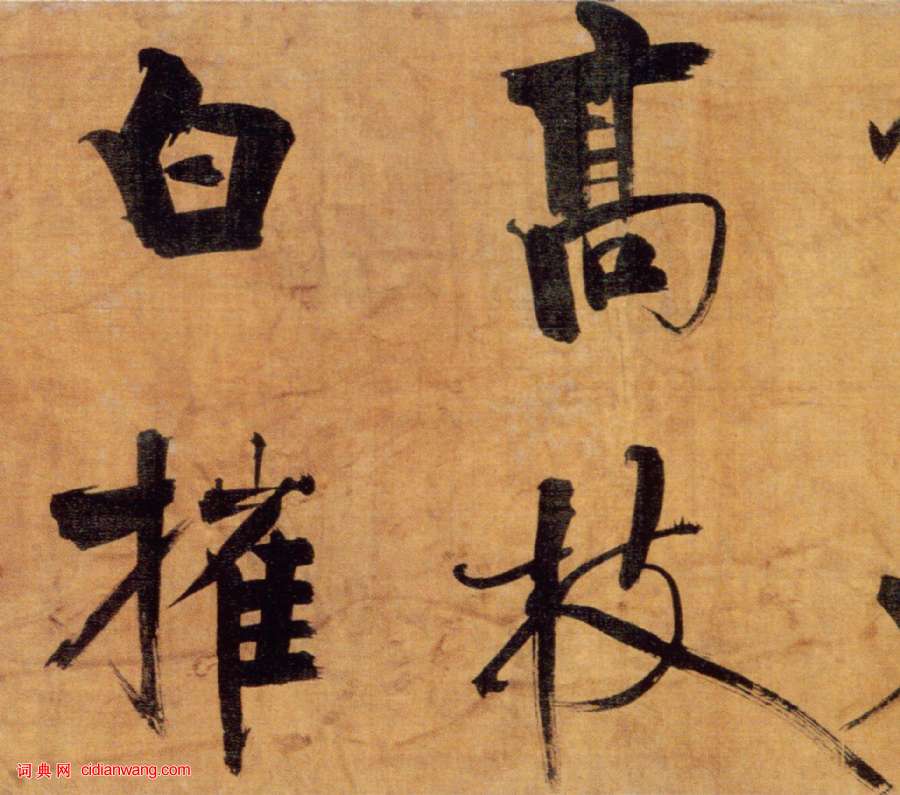 高枝
白摧
词典网 cidianwang.com